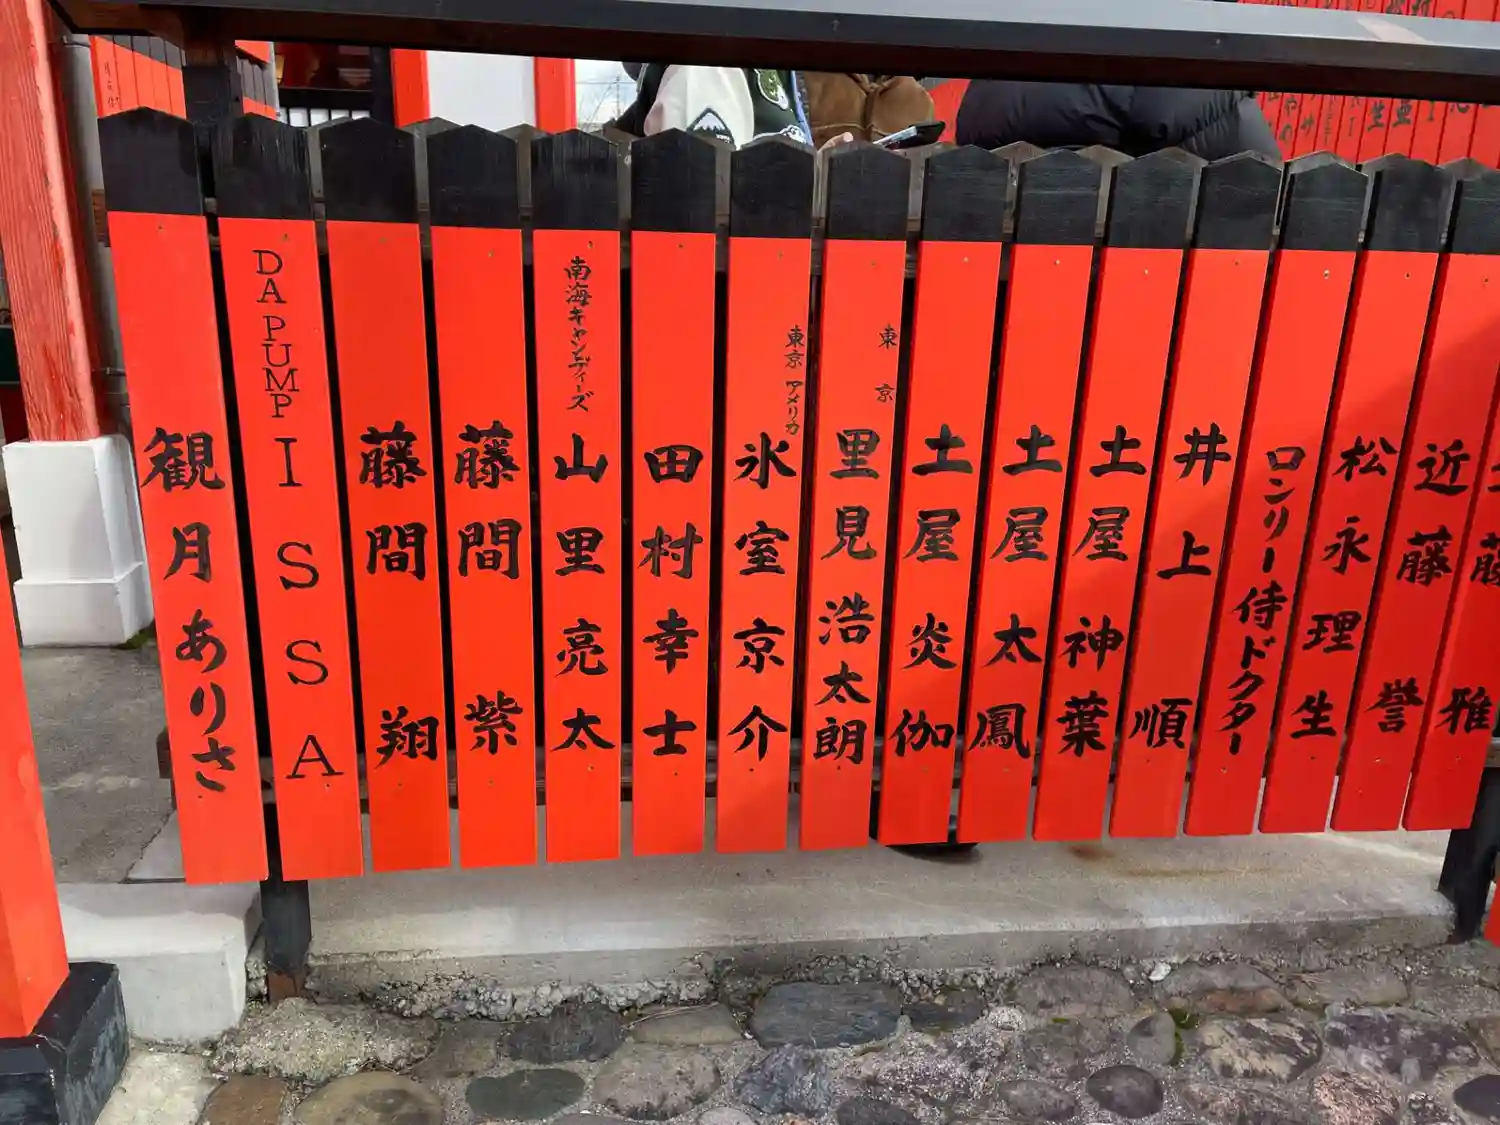 藤雅
近藤誉
松永理生
ロンリー侍ドクター
井上順
土屋神葉
土屋太鳳
土屋炎伽
東京
里見浩太朗
東京アメリカ
氷室京介
田村幸士
南海キャンディーズ
山里亮太
藤間紫
藤間翔
DA PUMP
ISSA
観月ありさ